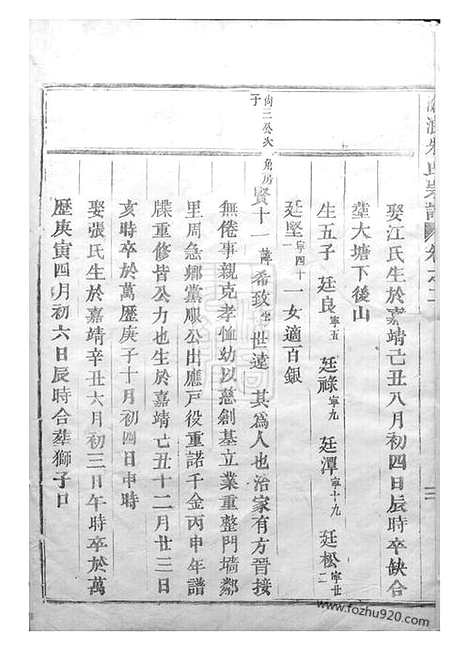 朱氏宗譜 卷之二
三
娶江氏生於嘉靖己丑八月初四日辰時卒缺合
塟大塘下後山
生五子 廷良 寧五 廷祿 寧九 廷潭 寧十九 廷松 寧廿二
廷堅 寧四十一 一女適百銀
尚三公次子
角房 賢十一 諱 希玫 字 世遠 其為人也治家有方晉接
無倦事親克孝恤幼以慈創基立業重整門墻鄰
里周急鄉黨服公出應戶役重諾千金丙申年譜
牒重修皆公力也生於嘉靖己丑十二月廿三日
亥時卒於萬歷庚子十月初四日申時
娶張氏生於嘉靖辛丑六月初三日午時卒於萬
歷庚寅四月初六日辰時合塟獅子口
www.fozhu920.com